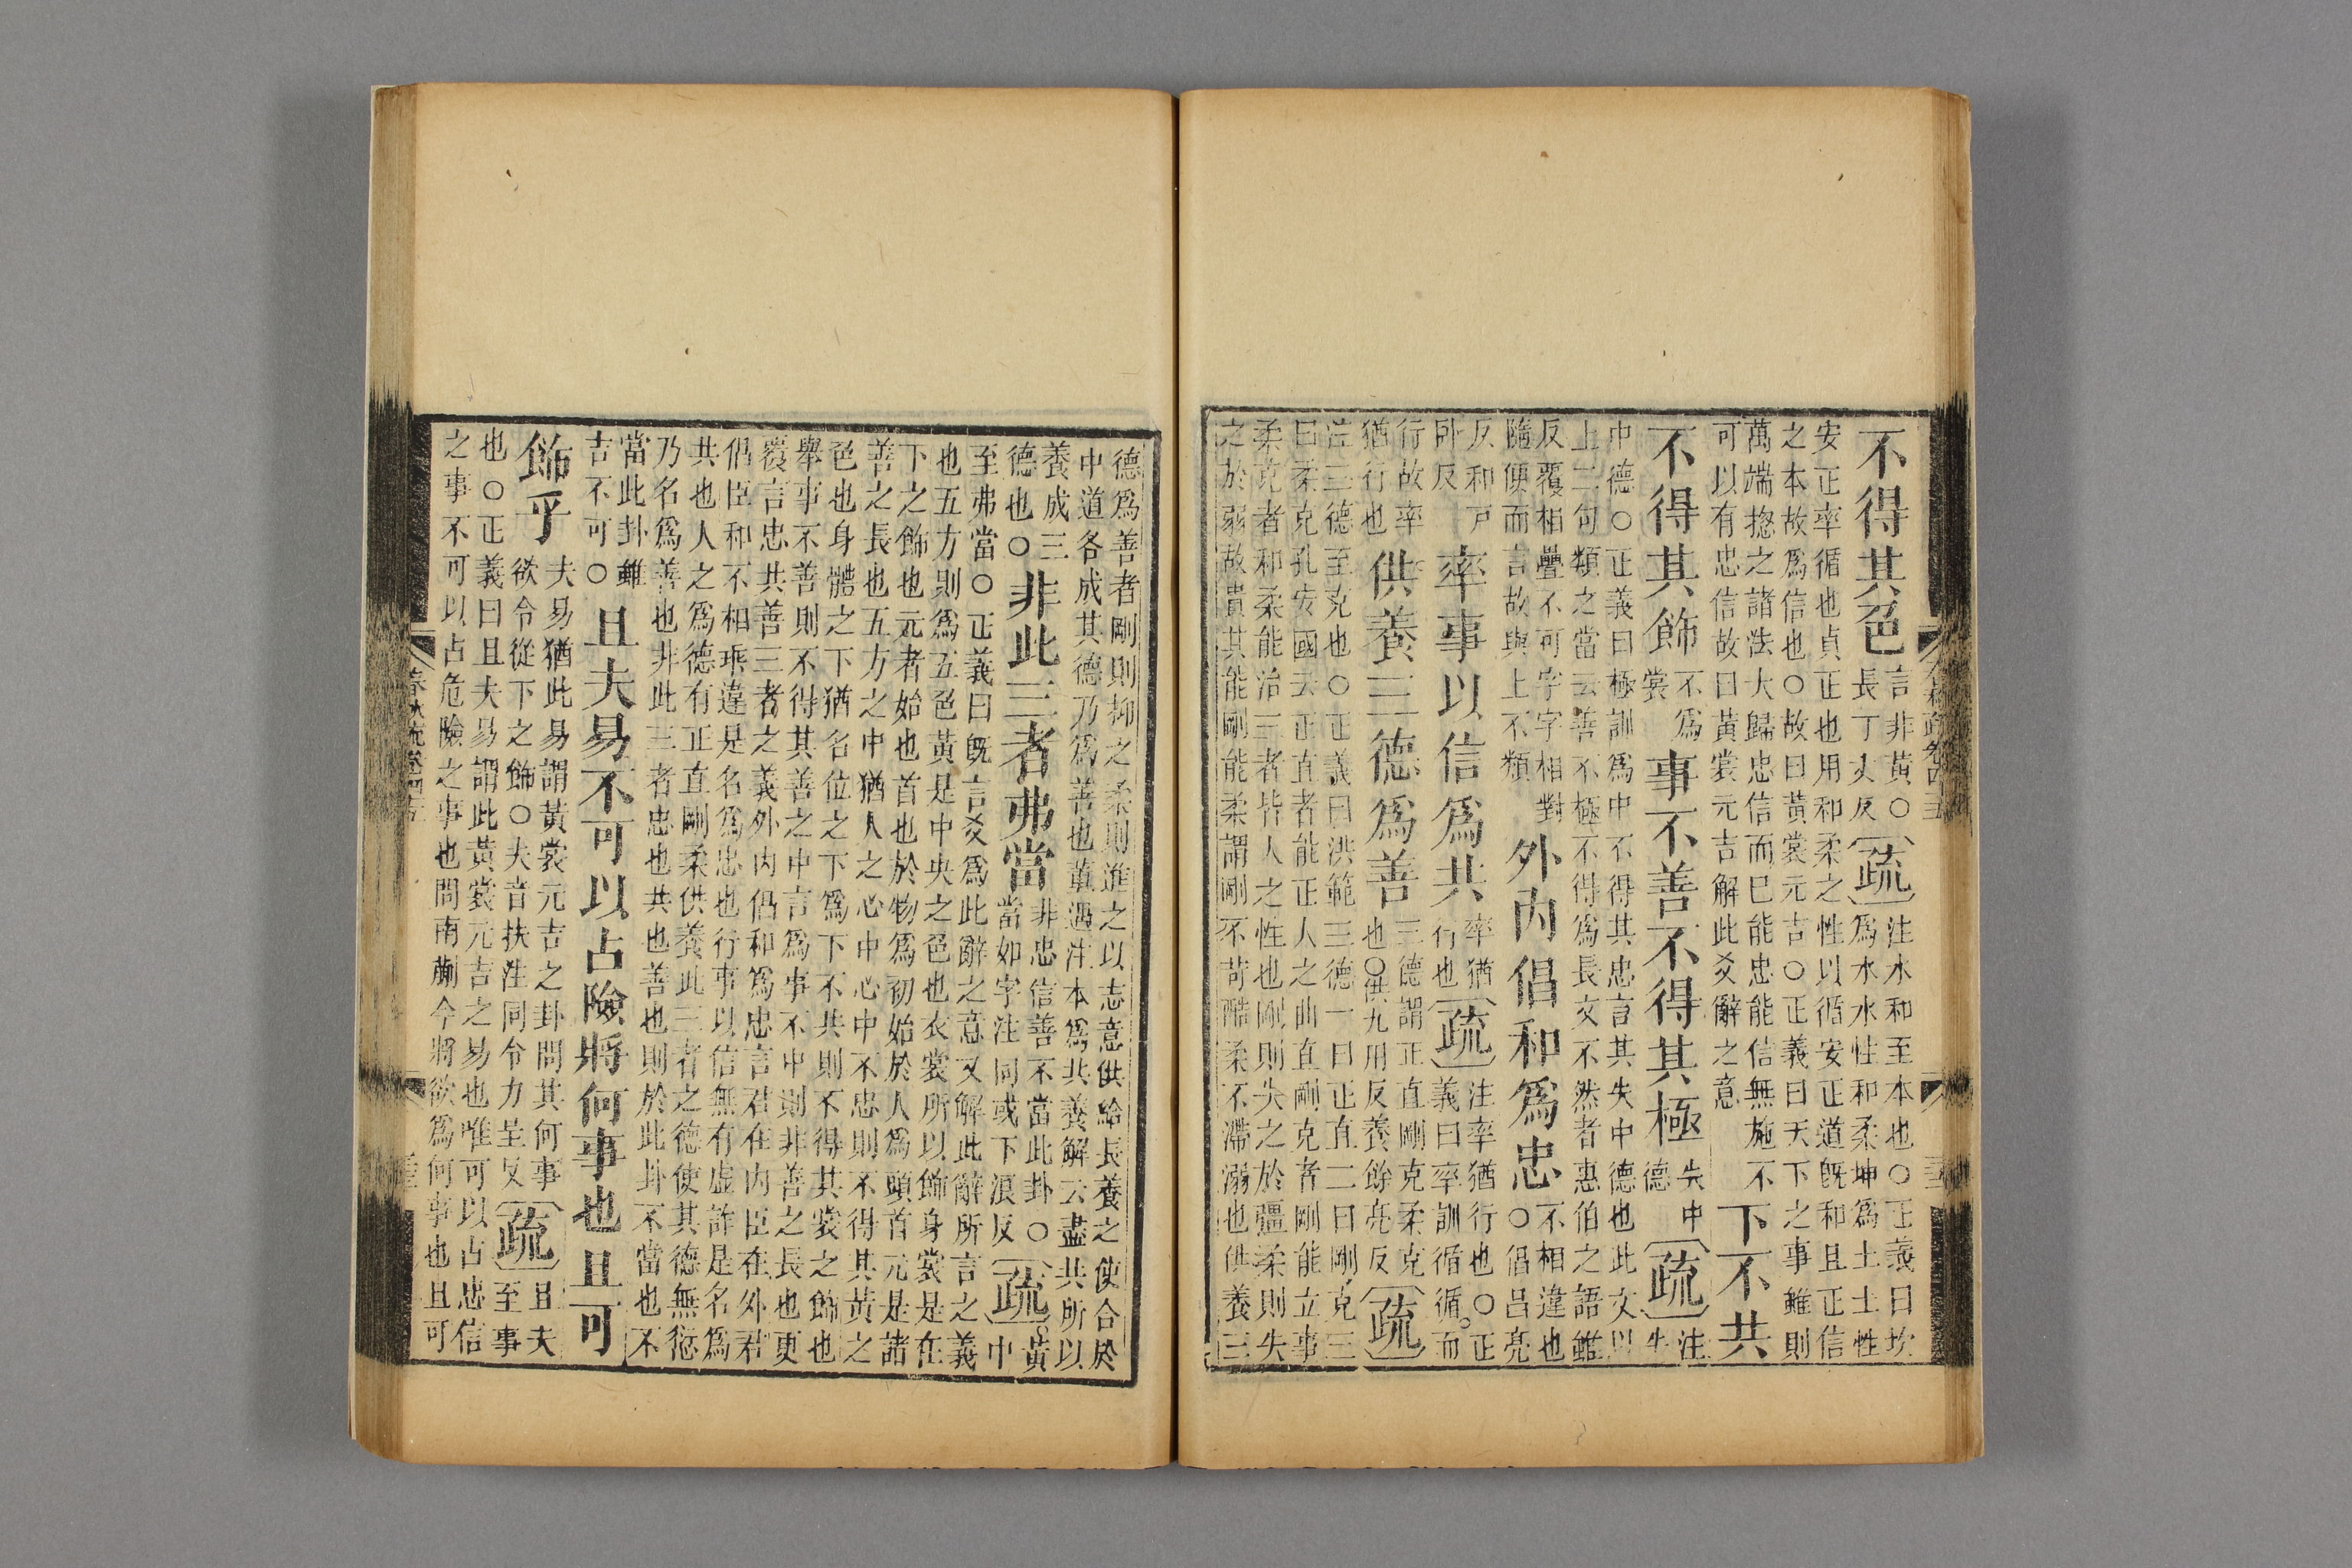 不得其色 言非黃○長丁丈反 疏 注水和至本也○正義曰坎爲水水性和柔坤爲土土性
安正率循也貞正也用和柔之性以循安正道既和且正信
之本故爲信也○故曰黃裳元吉○正義曰天下之事雖則
萬端揔之諸法大歸忠信而已能忠能信無施不
可以有忠信故曰黃裳元吉解此爻辭之意 下不共
不得其飾 不爲裳 事不善不得其極 失中德 疏 注失
中德○正義曰極訓爲中不得其忠言其失中德也此文以
上二句類之當云善不極不得爲長文不然者惠伯之語雖
反覆相疊不可字字相對
隨便而言故與上不類 外內倡和爲忠 不相違也○倡呂亮
反和戸
卧反 率事以信爲共 率猶行也 疏 注率猶行也○正義曰率訓循循而
行故率
猶行也 供養三德爲善 三德謂正直剛克柔克也○供九用反養餘亮反 疏
注三德至克也○正義曰洪範三德一曰正直二曰剛克三
曰柔克孔安國云正直者能正人之曲直剛克者剛能立事
柔克者和柔能治三者皆人之性也剛則失之於彊柔則失
之於弱故貴其能剛能柔謂剛不苛酷柔不滯溺也供養三
德爲善者剛則抑之柔則進之以志意供給長養之使合於
中道各成其德乃爲善也董遇注本爲共養解云盡共所以
養成三
德也○ 非此三者弗當 非忠信善不當此卦○當如字注同或下浪反 疏 黃中
至弗當○正義曰既言爻爲此辭之意又解此辭所言之義
也五方則爲五色黃是中央之色也衣裳所以飾身裳是在
下之飾也元者始也首也於物爲初始於人爲頭首元是諸
善之長也五方之中猶人之心中心中不忠則不得其黃之
色也身體之下猶名位之下爲下不共則不得其裳之飾也
舉事不善則不得其善之中言爲事不中則非善之長也更
覆言忠共善三者之義外內倡和爲忠言君在內臣在外君
倡臣和不相乖違是名爲忠也行事以信無有虛詐是名爲
共也人之爲德有正直剛柔供養此三者之德使其德無愆
乃名爲善也非此三者忠也共也善也則於此卦不當也不
當此卦雖
吉不可○ 且夫易不可以占險將何事也且可
飾乎 夫易猶此易謂黃裳元吉之卦問其何事欲令從下之飾○夫音扶注同令力呈反 疏 且夫至事
也○正義曰且夫易謂此黃裳元吉之易也唯可以占忠信
之事不可以占危險之事也問南蒯今將欲爲何事也且可